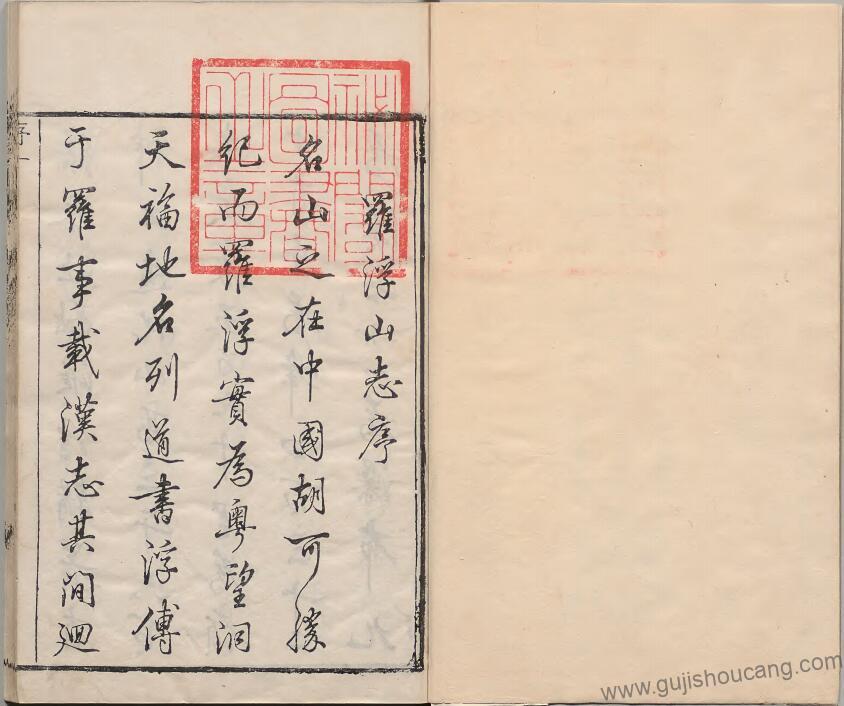 羅浮山志序
名山之在中國胡可勝
紀而羅浮實為粵望洞
天福地名列道書浮傅
于羅事載漢志其間廻
序一
www.gujishoucang.com